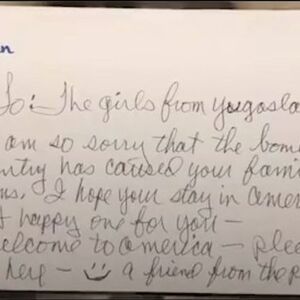 To: The girls from Yugosla
am so sorry that the bom
ntry has caused your fami
ns. I hope your stay in Ameri
happy one for you —
elcome to America — plea
here — a friend from the p